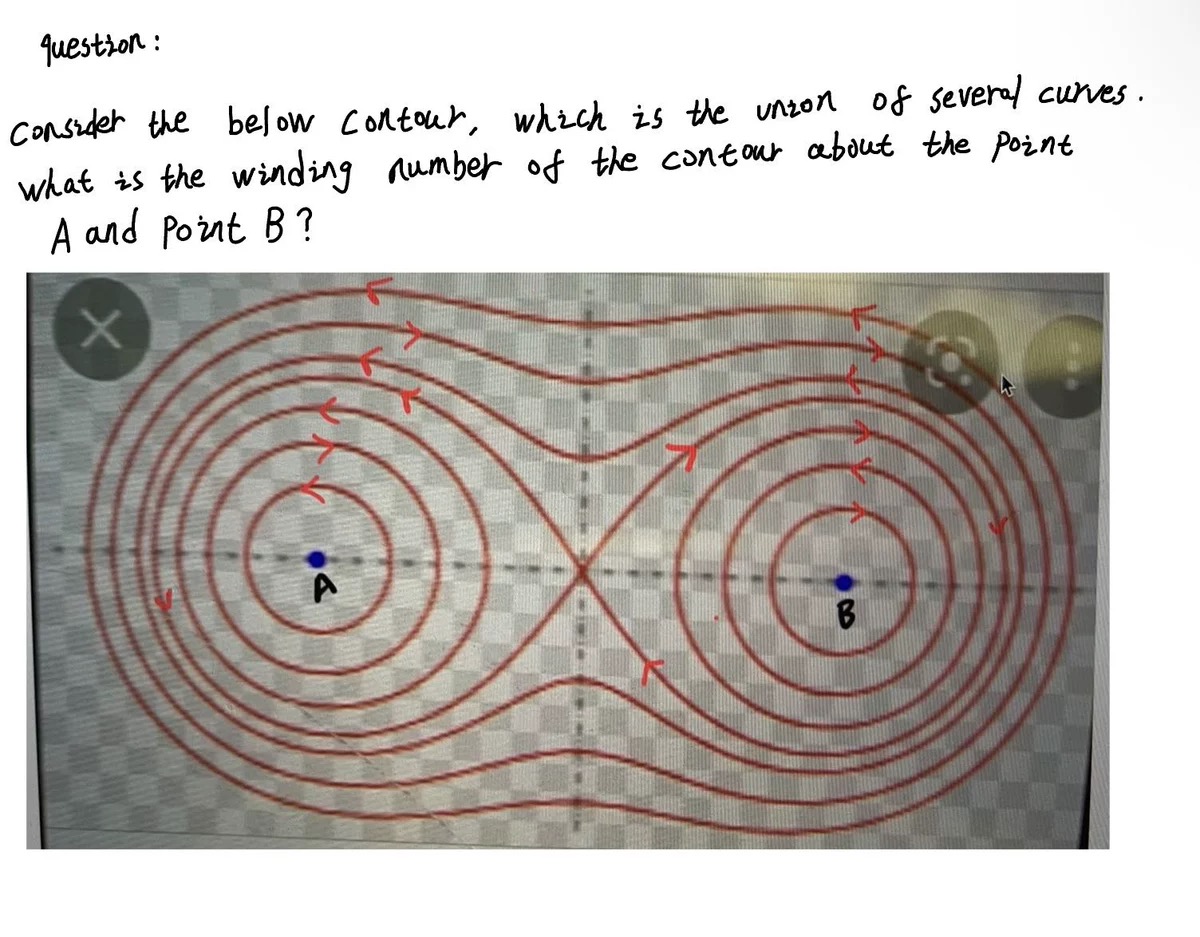 question :
consider the below contour, which is the union of several curves.
what is the winding number of the contour about the point
A and point B ?
A
B